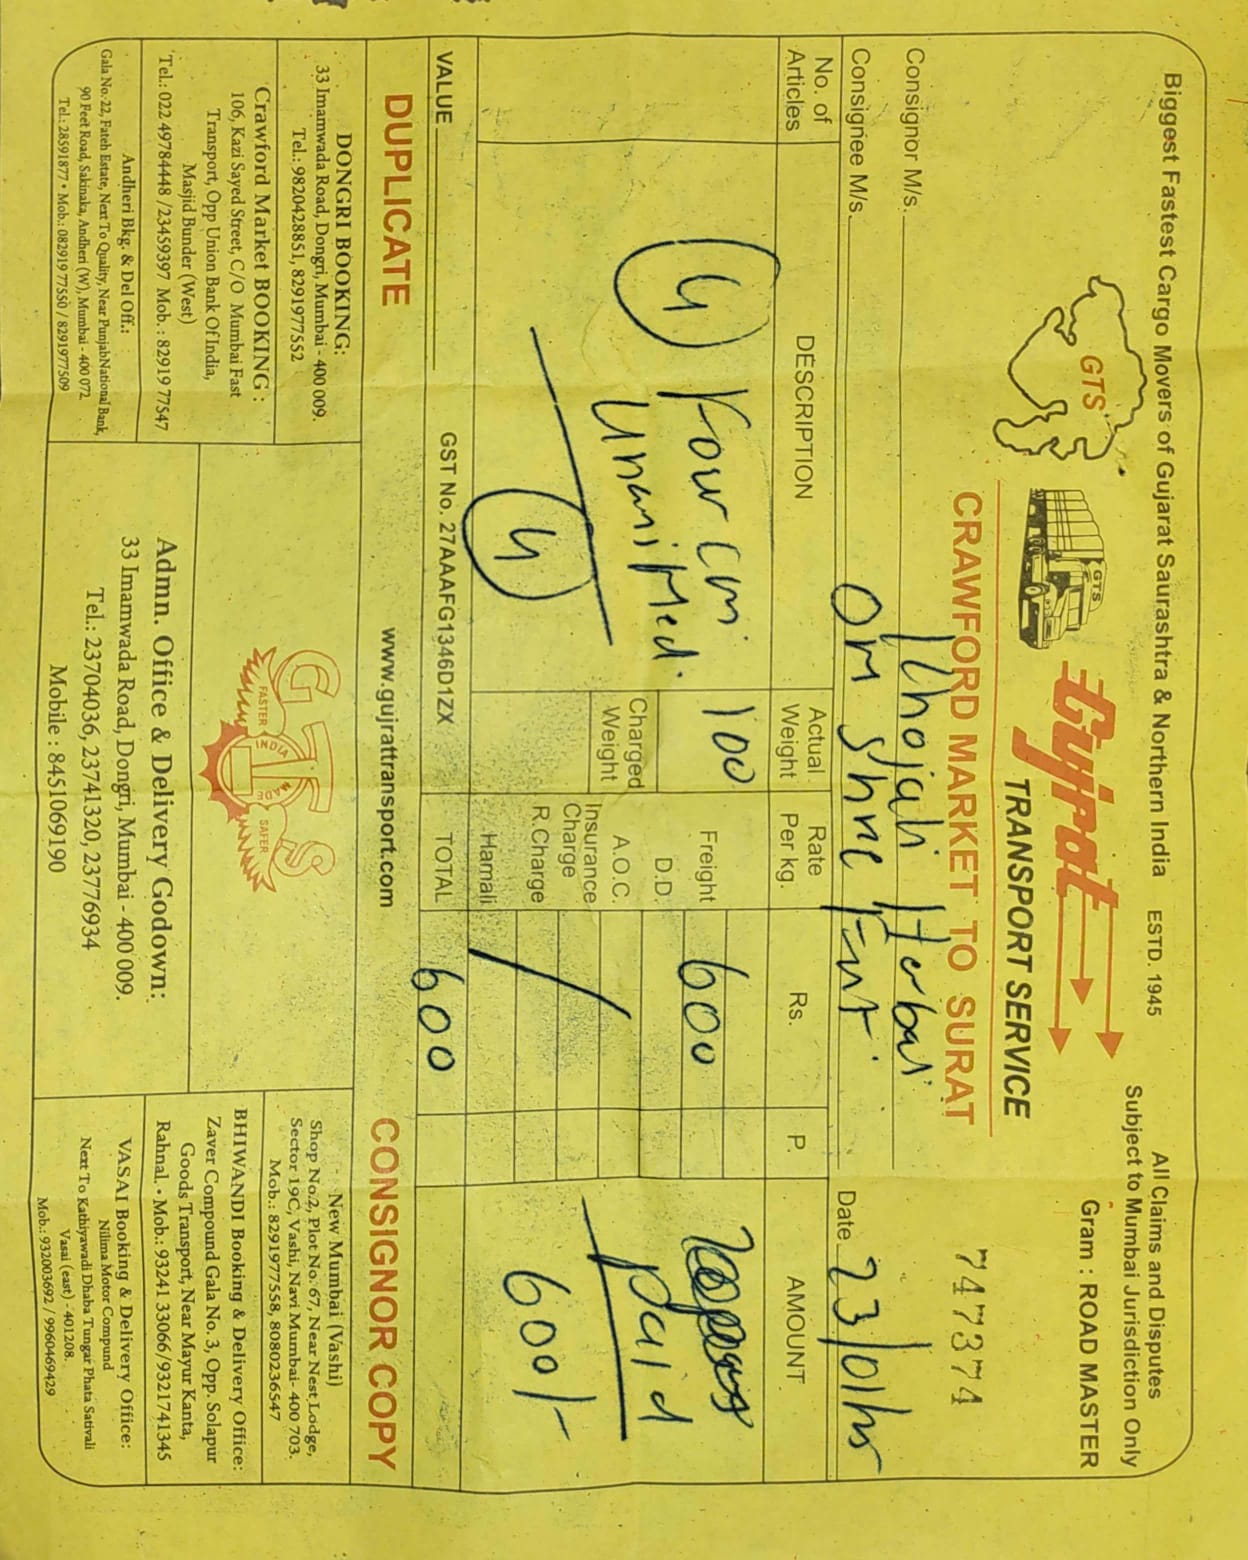 Biggest Fastest Cargo Movers of Gujarat Saurashtra & Northern India ESTD. 1945
All Claims and Disputes
Subject to Mumbai Jurisdiction Only
Gram : ROAD MASTER
GTS
GTS
Gujrat
TRANSPORT SERVICE
CRAWFORD MARKET TO SURAT
747374
Consignor M/s. Khojati Herbal
Consignee M/s. Om Shree Date 23/01/
No. of Articles
DESCRIPTION
Actual Weight
Rate Per kg.
Rs.
P.
AMOUNT
4 Four cm 100
Unani Med.
4
Charged Weight
Freight 600
D.D.
A.O.C.
Insurance Charge
R.Charge
Hamali
Paid
600/-
VALUE
GST No. 27AAAFG1346D1ZX
TOTAL 600
DUPLICATE
www.gujrattransport.com
CONSIGNOR COPY
DONGRI BOOKING:
33 Imamwada Road, Dongri, Mumbai - 400 009.
Tel.: 9820428851, 8291977552
Crawford Market BOOKING :
106, Kazi Sayed Street, C/O Mumbai Fast
Transport, Opp Union Bank Of India,
Masjid Bunder (West)
Tel.: 022 49784448 /23459397 Mob. : 82919 77547
Andheri Bkg. & Del Off.:
Gala No. 22, Fateh Estate, Next To Quality, Near PunjabNational Bank,
90 Feet Road, Sakinaka, Andheri (W), Mumbai - 400 072.
Tel.: 28591877 • Mob.: 082919 77550 / 8291977509
GTS
FASTER
INDIA
MADE
SAFER
Admn. Office & Delivery Godown:
33 Imamwada Road, Dongri, Mumbai - 400 009.
Tel.: 23704036, 23741320, 23776934
Mobile : 8451069190
New Mumbai (Vashi)
Shop No.2, Plot No. 67, Near Nest Lodge,
Sector 19C, Vashi, Navi Mumbai- 400 703.
Mob.: 8291977558, 8080236547
BHIWANDI Booking & Delivery Office:
Zaver Compound Gala No. 3, Opp. Solapur
Goods Transport, Near Mayur Kanta,
Rahnal. • Mob.: 93241 33066/9321741345
VASAI Booking & Delivery Office:
Nilima Motor Compund
Next To Kathiyawadi Dhaba Tungar Phata Sativali
Vasai (east) - 401208.
Mob.: 932003692 / 9960469429